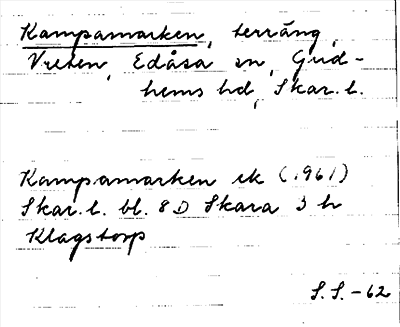 Kampamarken, terräng,
Vreten, Edåsa sn, Gud-
hems hd, Skar. l.
Kampamarken ek (1961)
Skar. l. bl. 8 D Skara 3 h
Klagstorp
S. S. -62